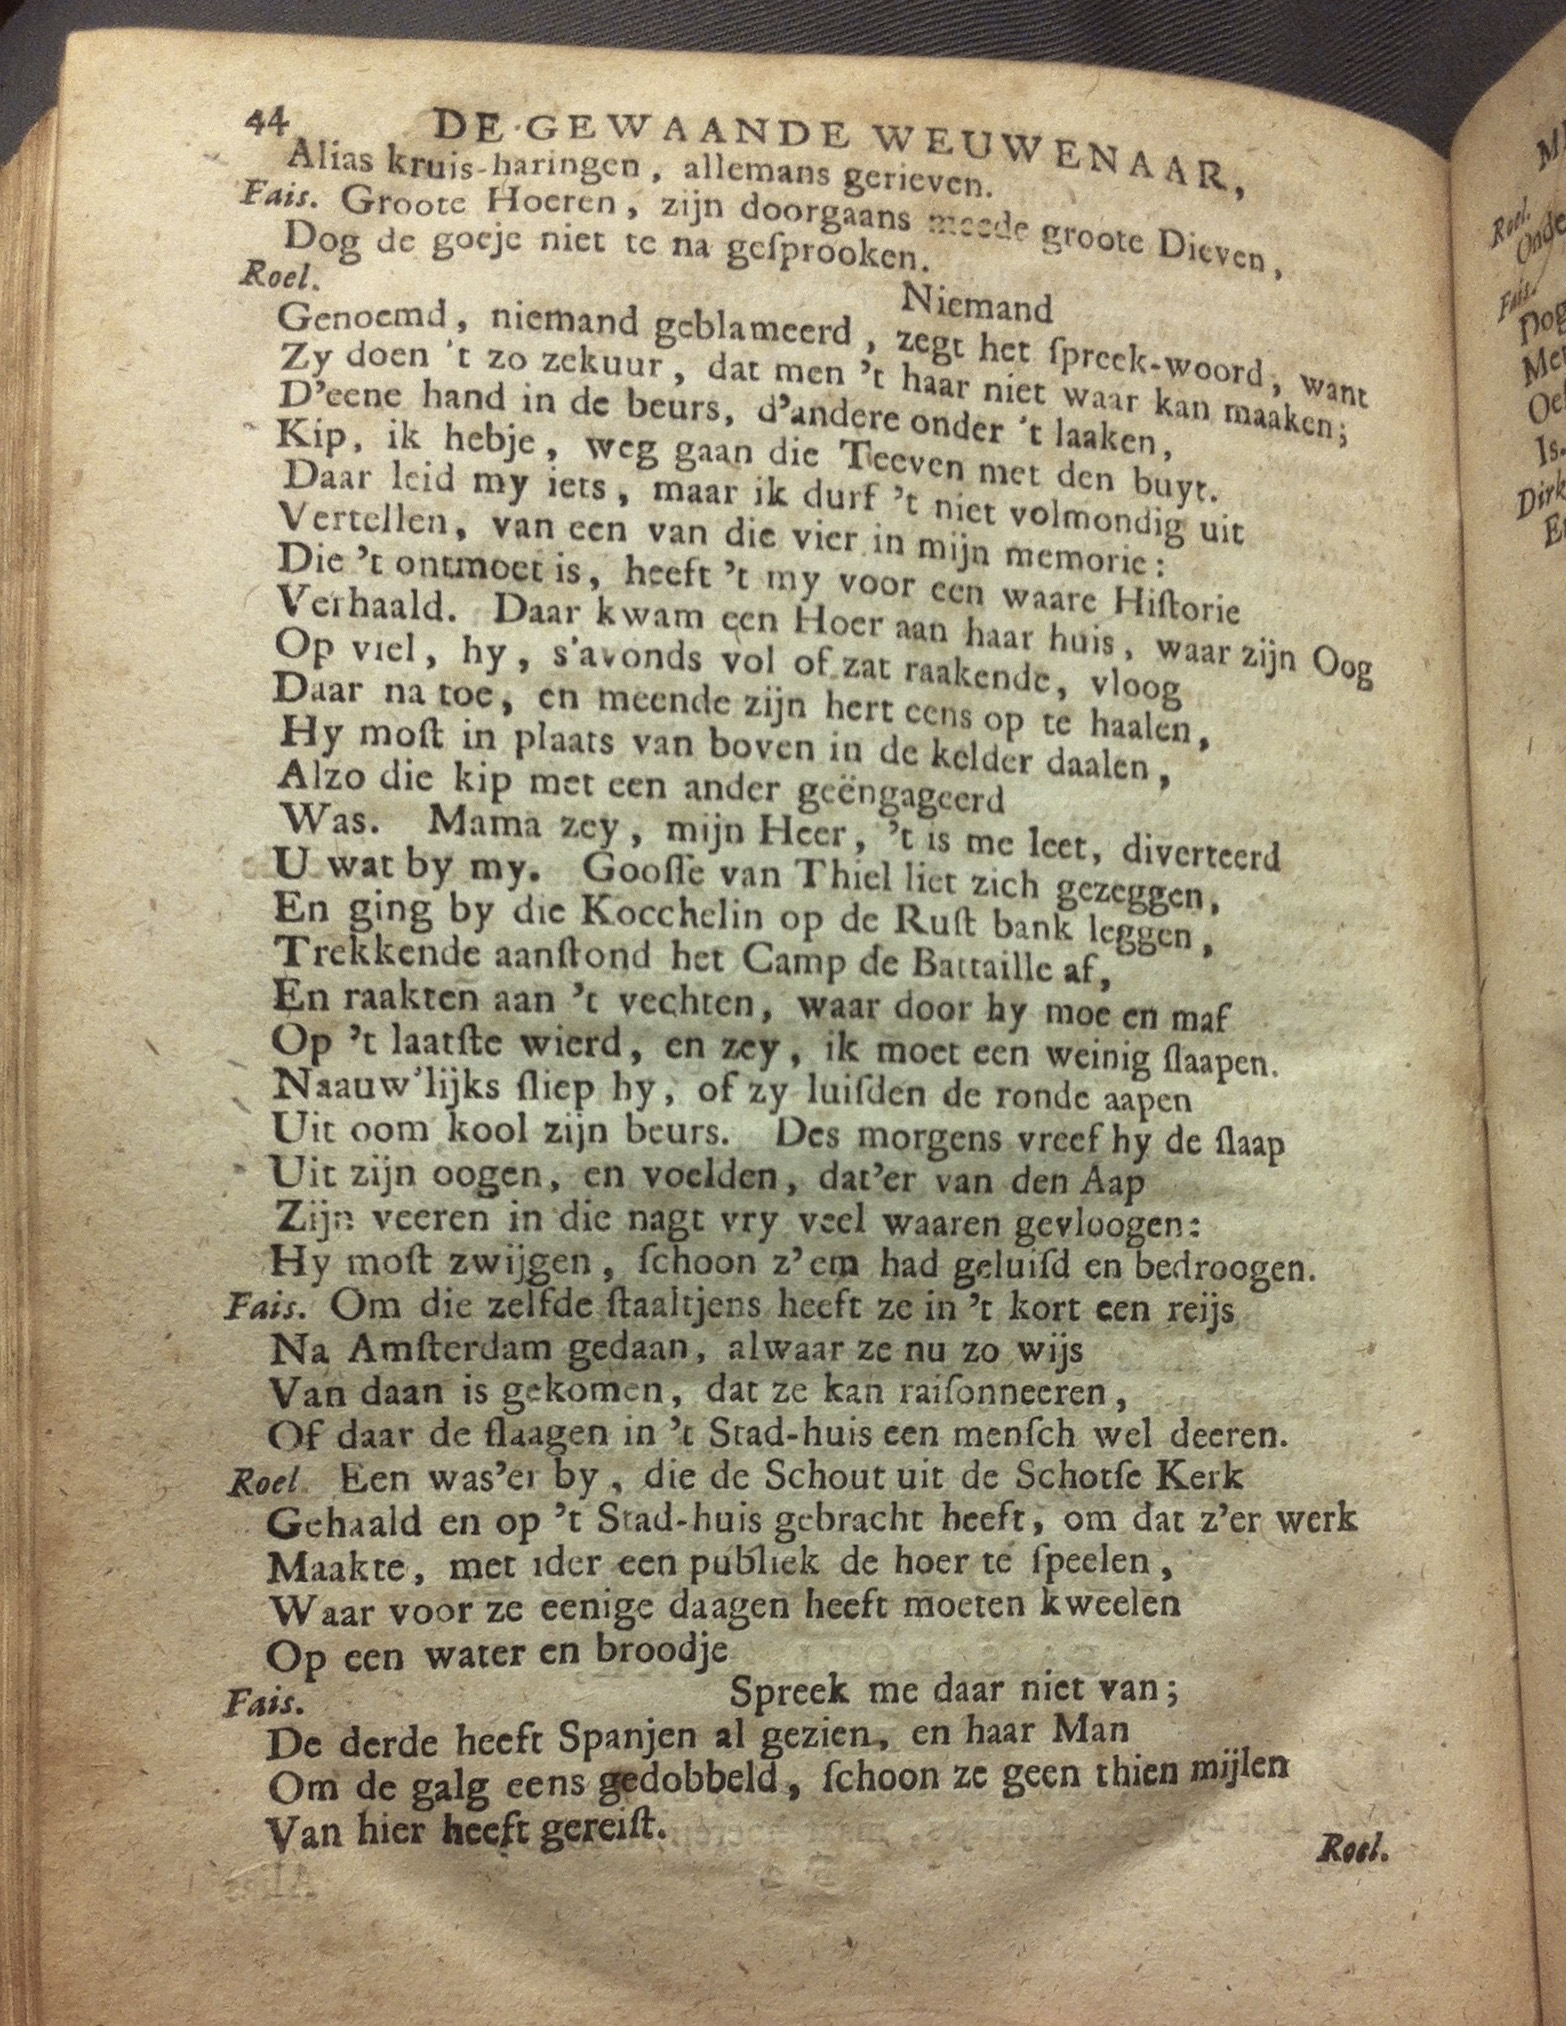 44 DE GEWAANDE WEUWENAAR,
Alias kruis-haringen, allemans gerieven.
Fais. Groote Hoeren, zijn doorgaans meede groote Dieven,
Dog de goeje niet te na geſprooken.
Roel. Niemand
Genoemd, niemand geblameerd, zegt het ſpreek-woord, want
Zy doen 't zo zekuur, dat men 't haar niet waar kan maaken;
D'eene hand in de beurs, d'andere onder 't laaken,
Kip, ik hebje, weg gaan die Teeven met den buyt.
Daar leid my iets, maar ik durf 't niet volmondig uit
Vertellen, van een van die vier in mijn memorie:
Die 't ontmoet is, heeft 't my voor een waare Hiſtorie
Verhaald. Daar kwam een Hoer aan haar huis, waar zijn Oog
Op viel, hy, s'avonds vol of zat raakende, vloog
Daar na toe, en meende zijn hert eens op te haalen,
Hy moſt in plaats van boven in de kelder daalen,
Alzo die kip met een ander geëngageerd
Was. Mama zey, mijn Heer, 't is me leet, diverteerd
U wat by my. Gooſſe van Thiel liet zich gezeggen,
En ging by die Kocchelin op de Ruſt bank leggen,
Trekkende aanſtond het Camp de Battaille af,
En raakten aan 't vechten, waar door hy moe en maf
Op 't laatſte wierd, en zey, ik moet een weinig ſlaapen.
Naauw'lijks ſliep hy, of zy luiſden de ronde aapen
Uit oom kool zijn beurs. Des morgens vreef hy de ſlaap
Uit zijn oogen, en voelden, dat'er van den Aap
Zijn veeren in die nagt vry veel waaren gevloogen:
Hy moſt zwijgen, ſchoon z'em had geluiſd en bedroogen.
Fais. Om die zelfde ſtaaltjens heeft ze in 't kort een reijs
Na Amſterdam gedaan, alwaar ze nu zo wijs
Van daan is gekomen, dat ze kan raiſonneeren,
Of daar de ſlaagen in 't Stad-huis een menſch wel deeren.
Roel. Een was'er by, die de Schout uit de Schotſe Kerk
Gehaald en op 't Stad-huis gebracht heeft, om dat z'er werk
Maakte, met ider een publiek de hoer te ſpeelen,
Waar voor ze eenige daagen heeft moeten kweelen
Op een water en broodje
Fais. Spreek me daar niet van;
De derde heeft Spanjen al gezien, en haar Man
Om de galg eens gedobbeld, ſchoon ze geen thien mijlen
Van hier heeft gereiſt.
Roel.